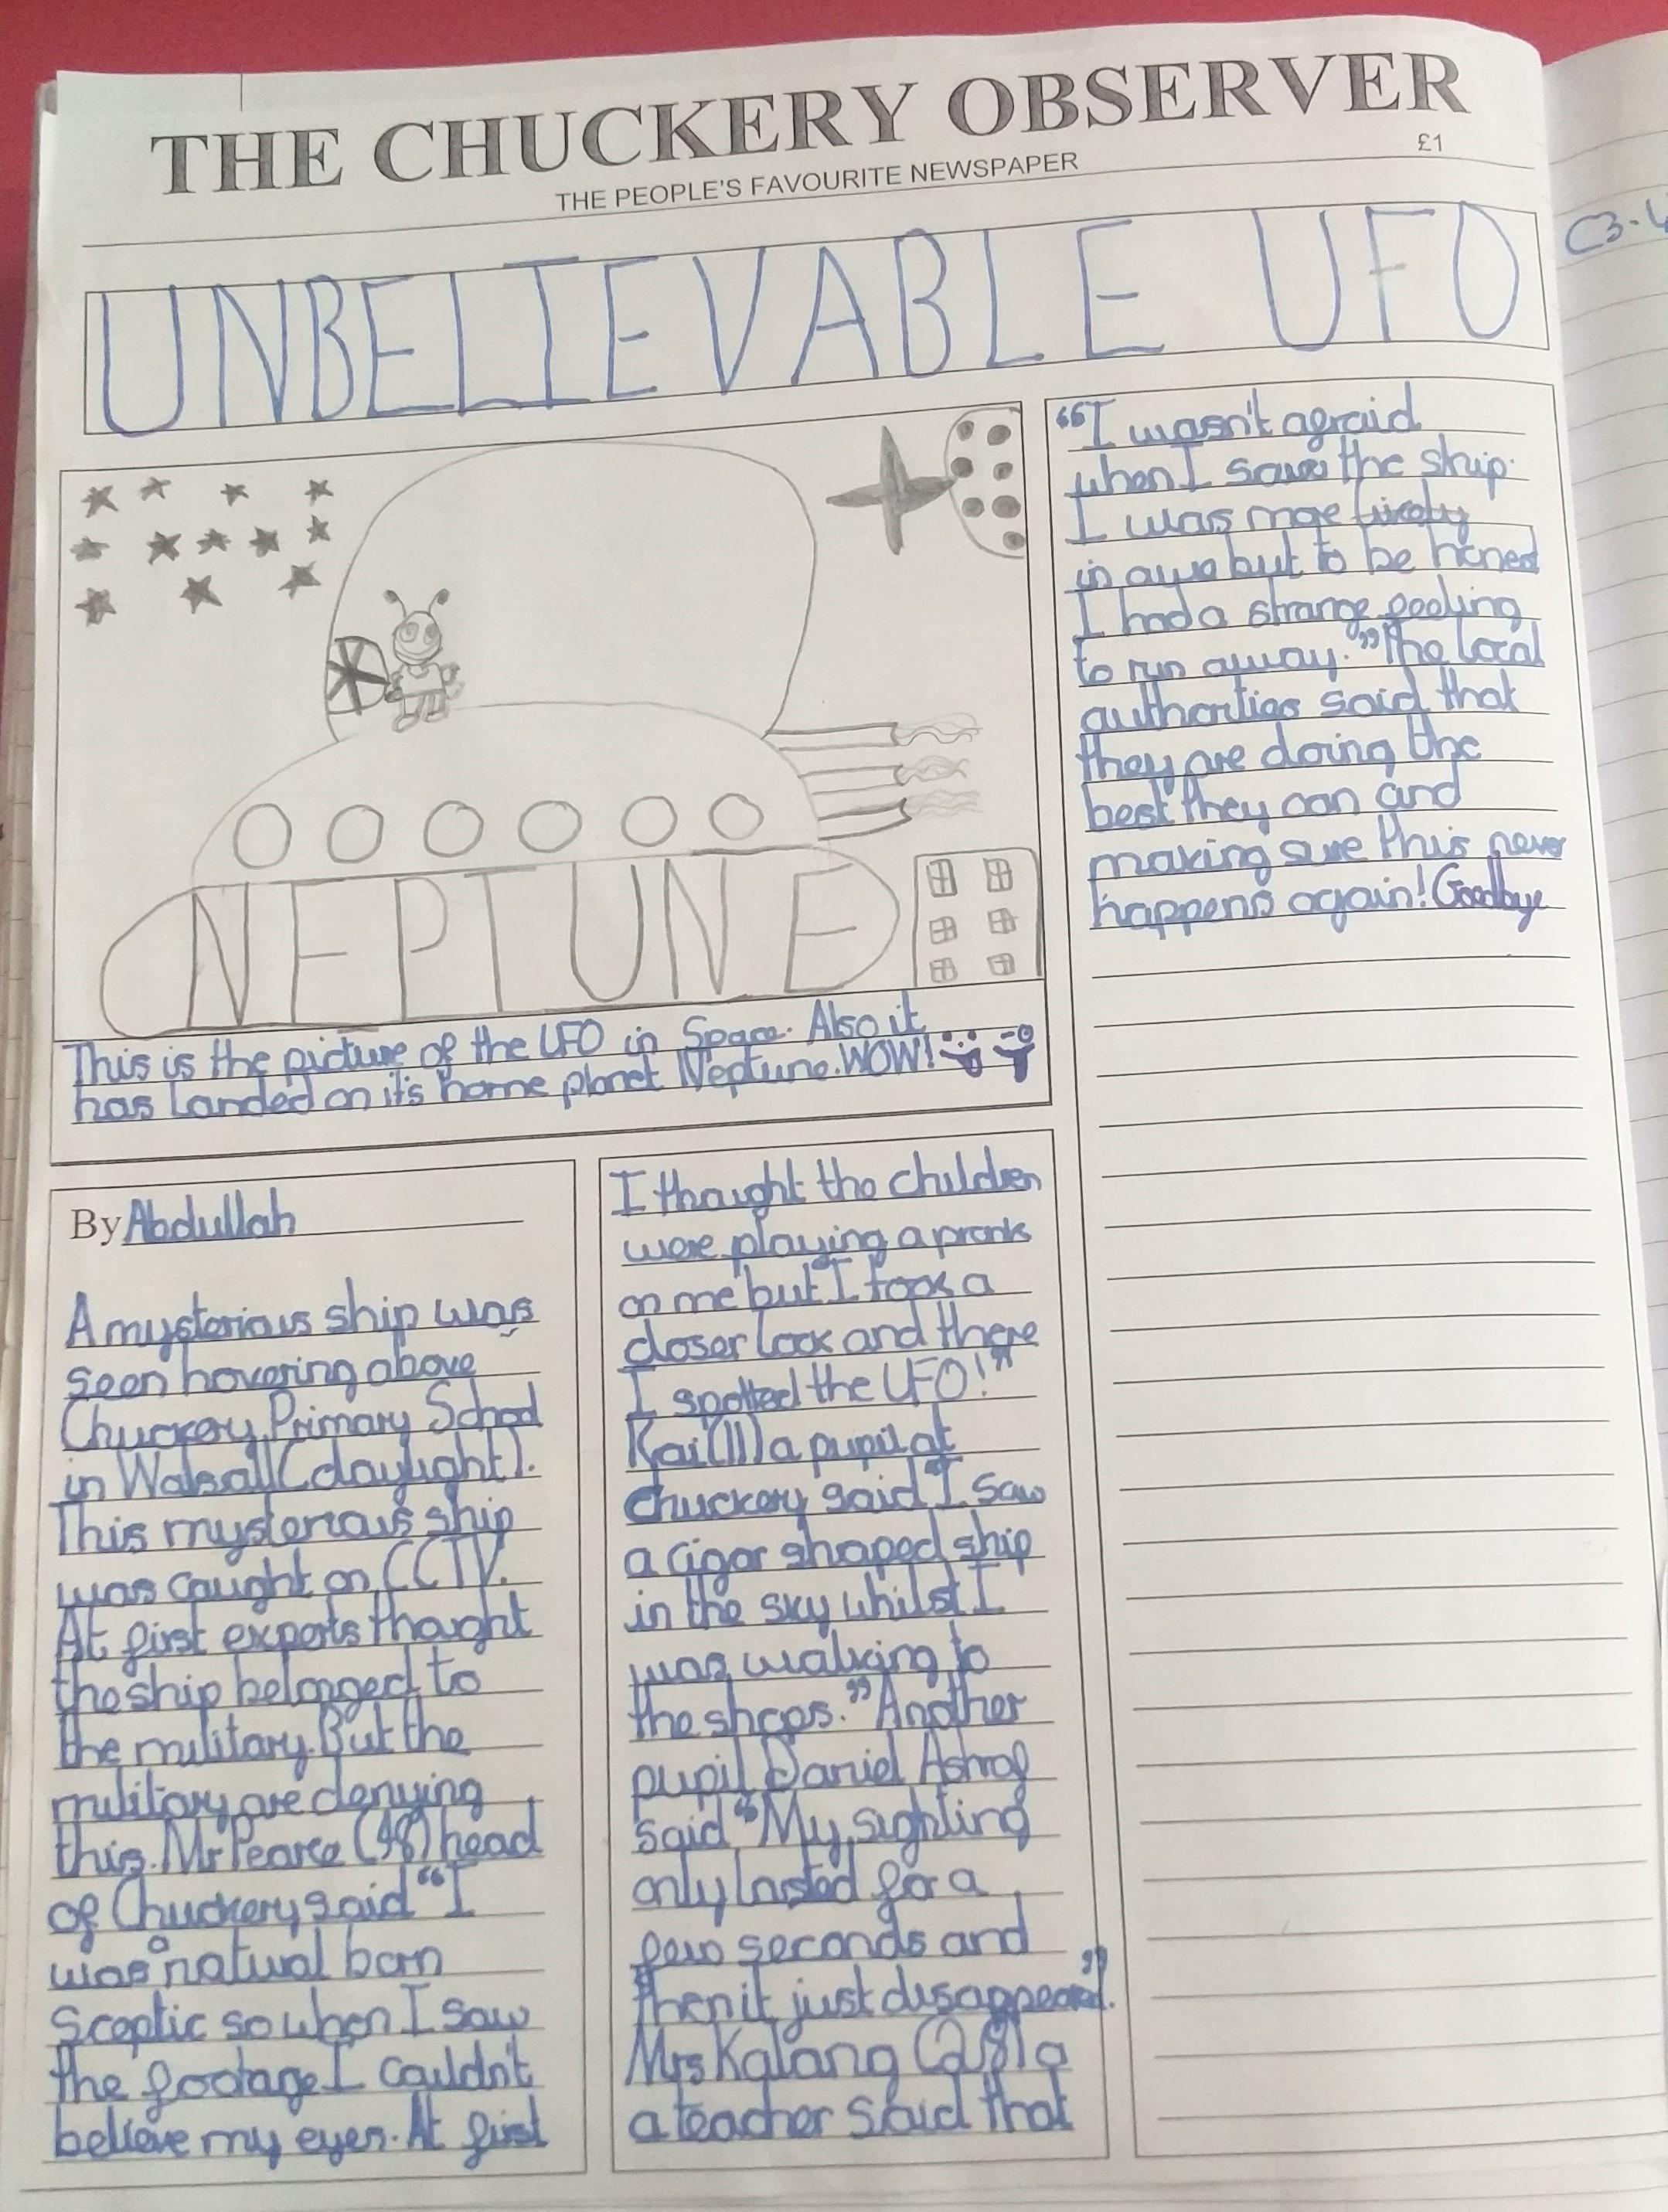 THE CHUCKERY OBSERVER
THE PEOPLE'S FAVOURITE NEWSPAPER
£1
UNBELIEVABLE UFO
NEPTUNE
This is the picture of the UFO in Space. Also it
has landed on it's home planet Neptune. WOW!
By Abdullah
A mysterious ship was
seen hovering above
Chuckery Primary School
in Walsall (daylight).
This mysterious ship
was caught on CCTV.
At first experts thought
the ship belonged to
the military. But the
military are denying
this. Mr Pearce (48) head
of Chuckery said "I
was a natural born
Sceptic so when I saw
the footage I couldn't
believe my eyes. At first
I thought the children
were playing a prank
on me but I took a
closer look and there
I spotted the UFO!"
Kai (11) a pupil at
Chuckery said "I saw
a cigar shaped ship
in the sky whilst I
was walking to
the shops." Another
pupil Daniel Ashraf
said "My sighting
only lasted for a
few seconds and
then it just disappeared."
Mrs Kalang (28) a
a teacher said that
"I wasn't afraid
when I saw the ship.
I was more
in awe but to be honest
I had a strange feeling
to run away." The local
authorities said that
they are doing the
best they can and
making sure this never
happens again! Goodbye